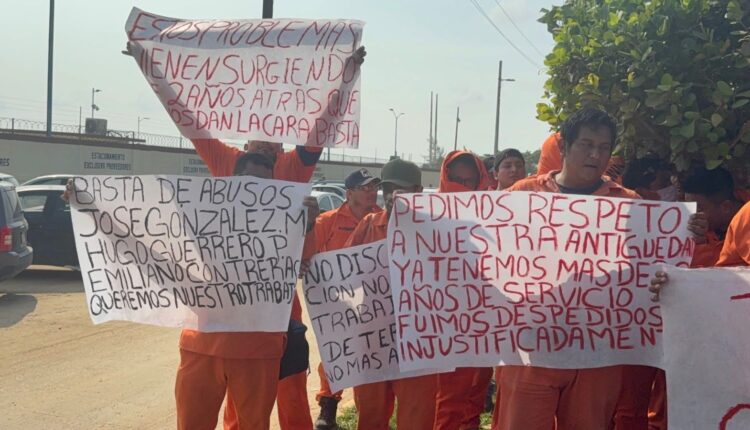 ESTOS PROBLEMAS
VIENEN SURGIENDO
2 AÑOS ATRAS QUE
NOS DAN LA CARA BASTA
ESTACIONAMIENTO
EXCLUSIVO PROVEEDORES
BASTA DE ABUSOS
JOSE GONZALEZ.M
HUGO GUERRERO P.
EMILIANO CONTRERAS
QUEREMOS NUESTRO TRABAJ
NO DISC
CION NO
TRABAJ
DE TER
NO MAS A
PEDIMOS RESPETO
A NUESTRA ANTIGUEDAD
YA TENEMOS MAS DE
AÑOS DE SERVICIO
FUIMOS DESPEDIDOS
INJUSTIFICADAMEN